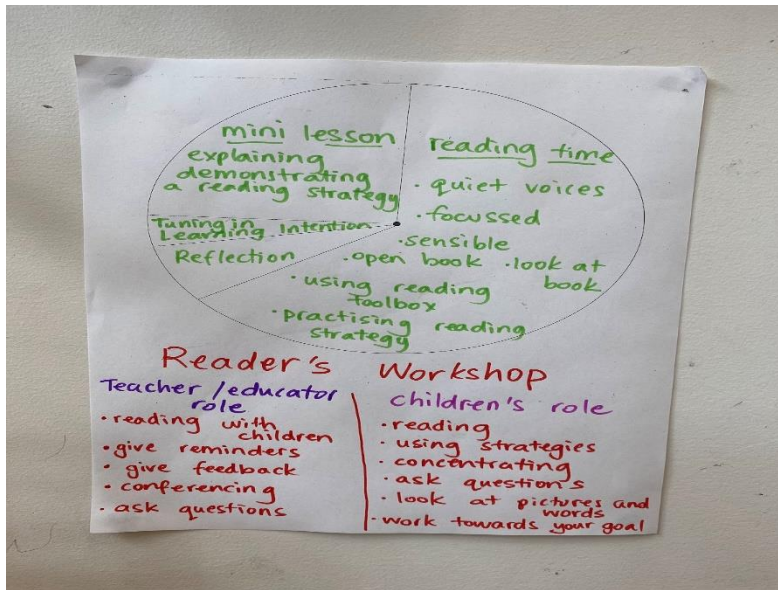 mini lesson
explaining
demonstrating
a reading strategy
Tuning in
Learning Intention
Reflection
reading time
· quiet voices
· focussed
· sensible
· open book · look at
book
· using reading
toolbox
· practising reading
strategy
Reader's Workshop
Teacher / educator
role
· reading with
children
· give reminders
· give feedback
· conferencing
· ask questions
children's role
· reading
· using strategies
· concentrating
· ask questions
· look at pictures and
words
· work towards your goal